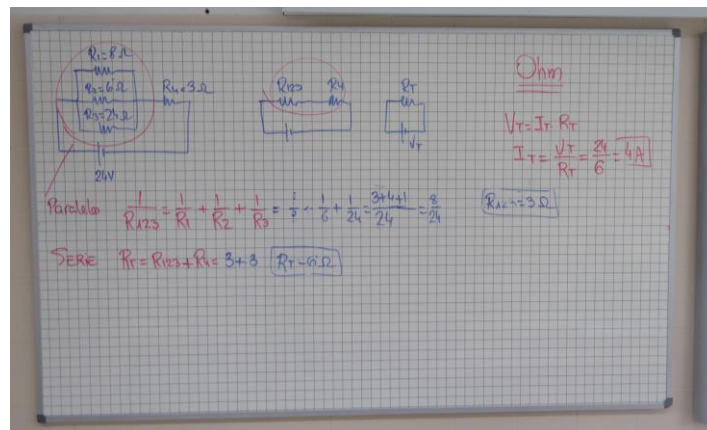 R1=8Ω
R2=6Ω
R3=24Ω
R4=3Ω
24V
R123 R4
RT
VT
Ohm
VT=IT·RT
IT=VT/RT=24/6=4A
Paralelo 1/R123=1/R1+1/R2+1/R3=1/8+1/6+1/24=3+4+1/24=8/24 R123=3Ω
SERIE RT=R123+R4=3+3 RT=6Ω